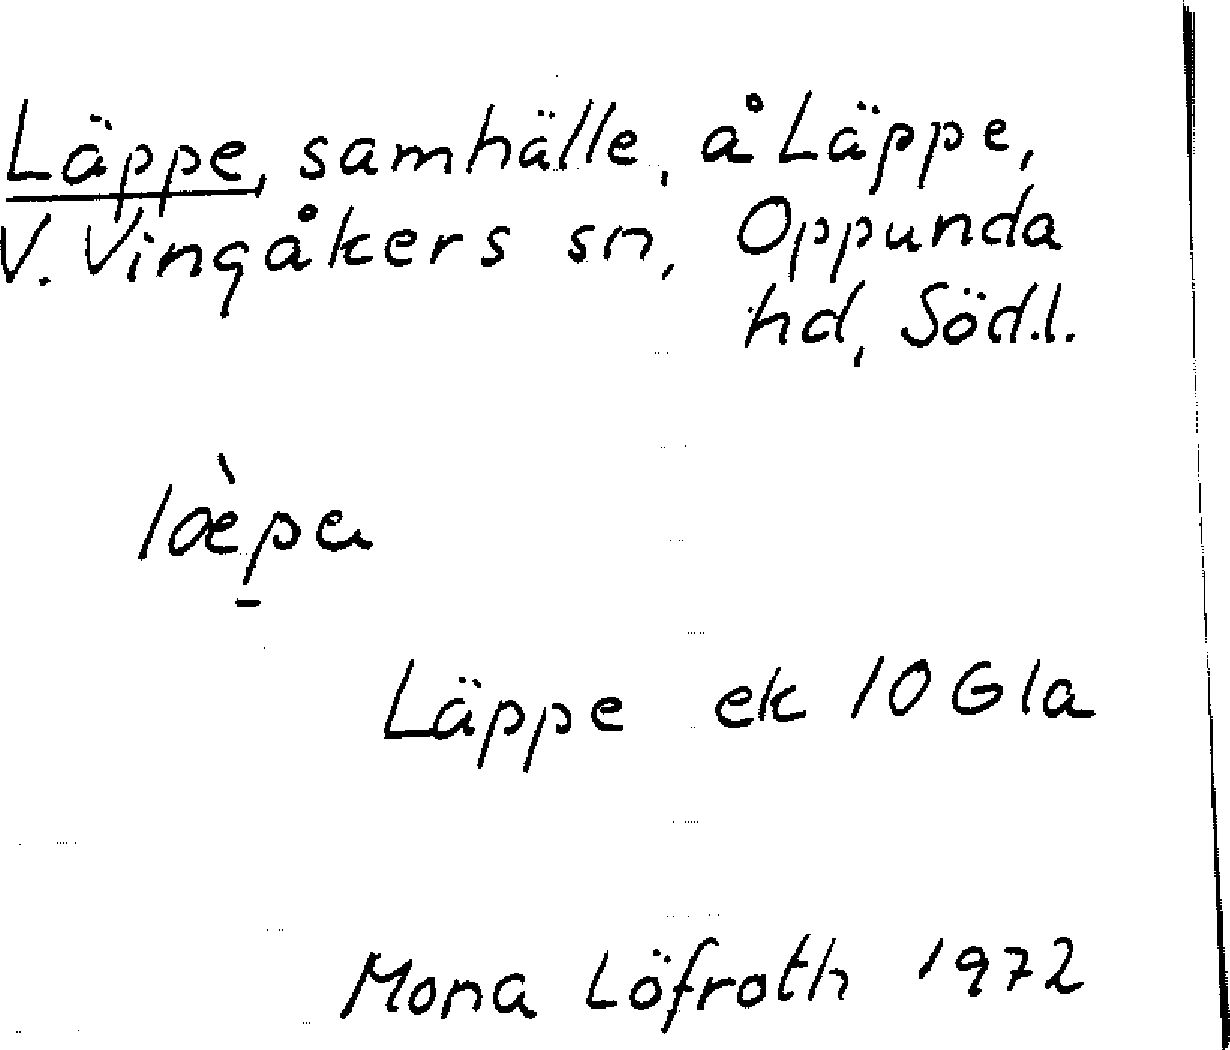 Läppe, samhälle, å Läppe,
V. Vingåkers sn, Oppunda
hd, Söd.l.
Läppe ek 10 G1a
Mona Löfroth 1972